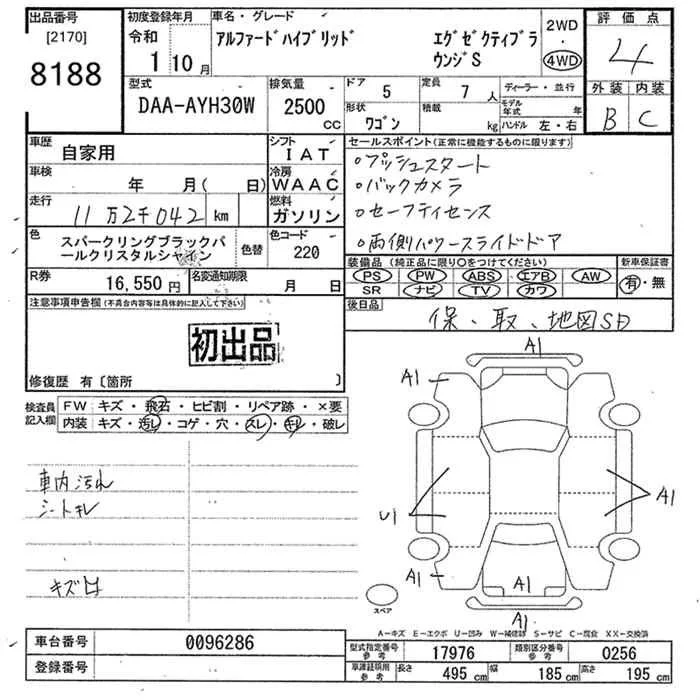 出品番号
[2170]
8188
初度登録年月
令和
1 10月
車名・グレード
アルファードハイブリッド エグゼクティブラ
ウンジS
2WD
・
4WD
評価点
4
外装 内装
B C
型式
DAA-AYH30W
排気量
2500
CC
ドア
5
定員
7 人
形状
ワゴン
積載
kg
ディーラー・並行
モデル
年式 年
ハンドル 左・右
車歴
自家用
シフト
IAT
車検
年 月( 日)
冷房
WAAC
走行
11万2千042 km
燃料
ガソリン
色
スパークリングブラックパ
ールクリスタルシャイン
色替
色コード
220
R券
16,550円
名変通知期限
月 日
セールスポイント(正常に機能するものに限ります)
○プッシュスタート
○バックカメラ
○セーフティセンス
○両側パワースライドドア
装備品(純正品に限り○をつけてください)
PS PW ABS エアB AW
SR ナビ TV カワ
新車保証書
有・無
後日品
保、取、地図SD
注意事項申告欄(不具合内容等は具体的に記入して下さい)
初出品
修復歴 有〔箇所 〕
検査員
記入欄
FW キズ・飛石・ヒビ割・リペア跡・×要
内装 キズ・汚レ・コゲ・穴・スレ・キレ・破レ
車内汚れ
シートキレ
キズ有
A1
A1
U1
A1
A1
A1
A1
スペア
A−キズ E−エクボ U−凹み W−補修跡 S−サビ C−腐食 XX−交換済
車台番号
0096286
登録番号
型式指定番号
参考
17976
類別区分番号
参考
0256
車検証明用
参考
長さ 495 cm 幅 185 cm 高さ 195 cm